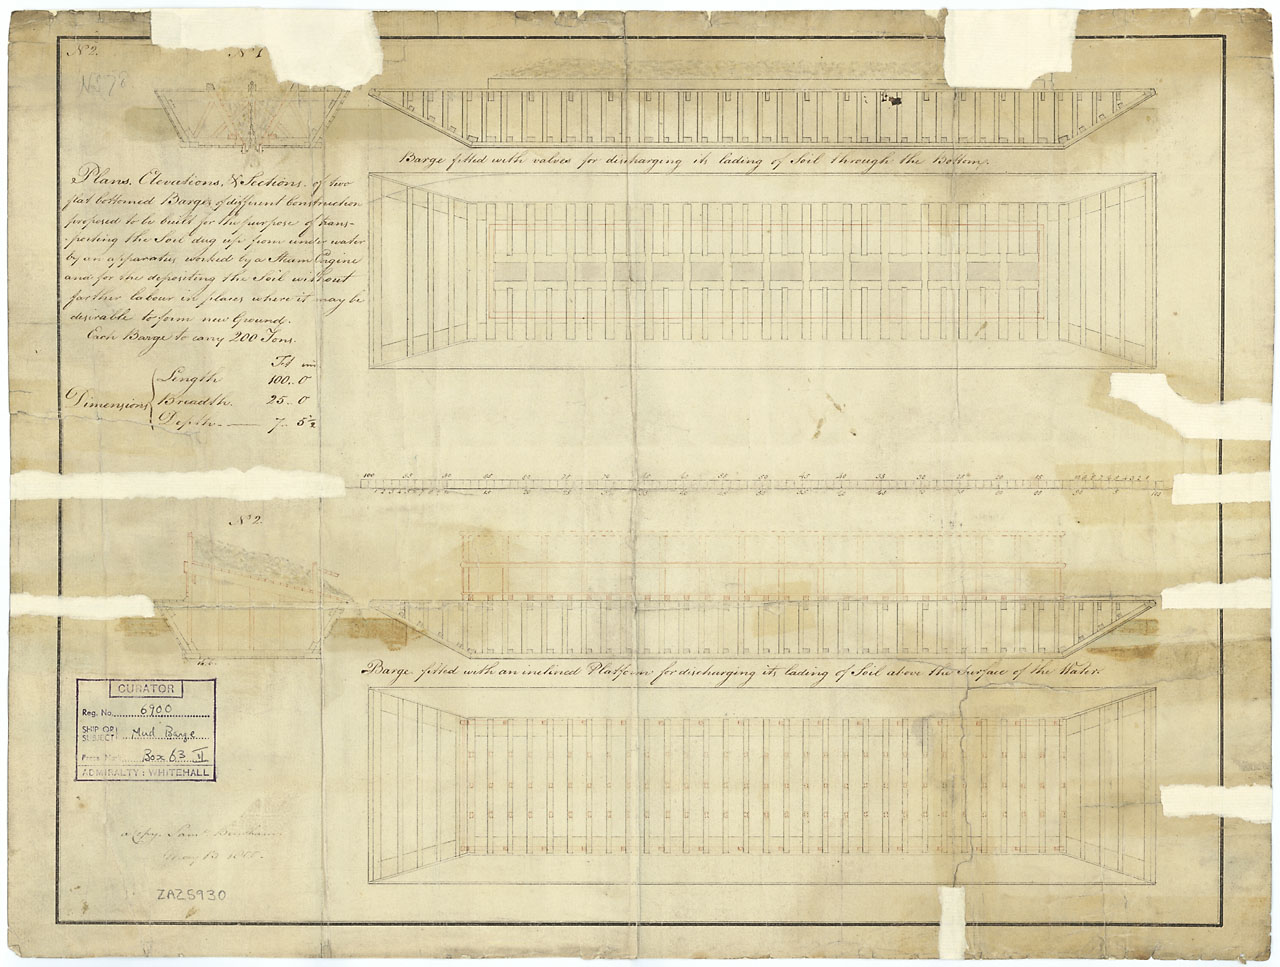 Nº 2.
Nº 1
NS78
Barge fitted with valves for discharging its lading of Soil through the Bottom.
Plans, Elevations, & Sections, of two
flat bottomed Barges of different Construction
proposed to be built for the purpose of trans-
-porting the Soil dug up from under water
by an apparatus worked by a Steam Engine
and for the depositing the Soil without
farther labour in places where it may be
desirable to form new Ground.
Each Barge to carry 200 Tons.
Ft in
Dimensions
Length 100.. 0
Breadth. 25.. 0
Depth. 7.. 5½
Nº 2.
Barge fitted with an inclined Platform for discharging its lading of Soil above the Surface of the Water.
CURATOR
Reg. No. 6900
SHIP OR SUBJECT Mud Barge
Press No. Box 63 II
ADMIRALTY : WHITEHALL
a Copy. Saml. Bentham
ZAZ5930